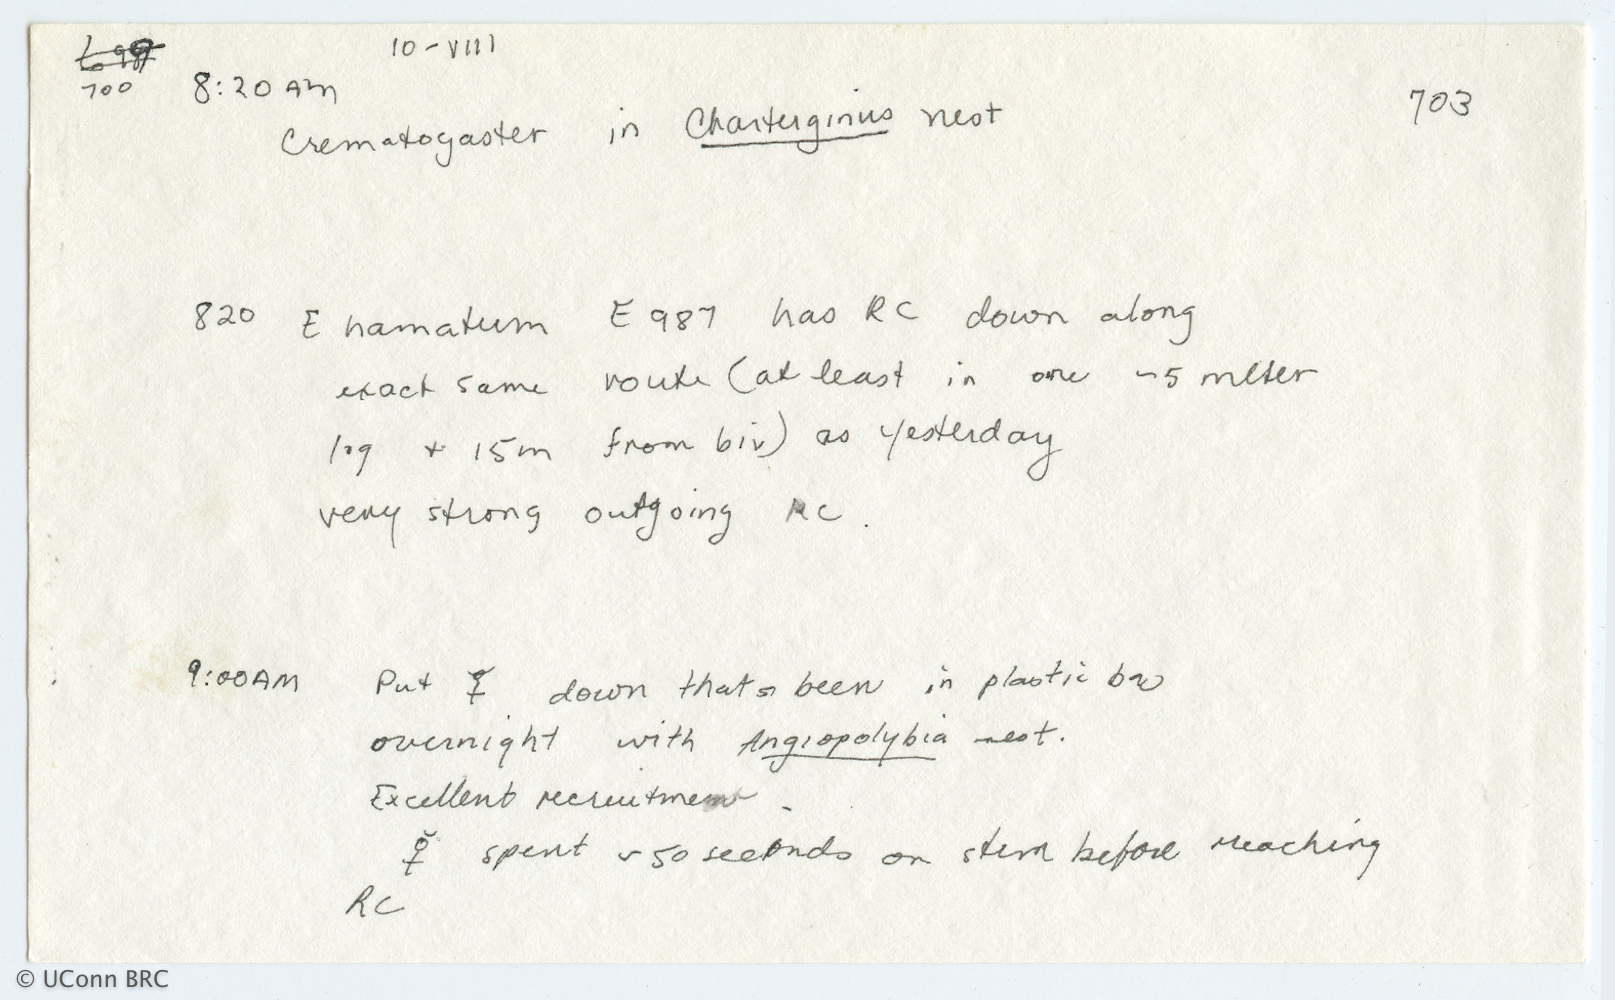 10-VIII
700 8:20 AM
703
Crematogaster in Charterginus nest
820 E hamatum E 987 has RC down along
exact same route (at least in one ~5 meter
log + 15m from biv) as yesterday
very strong outgoing RC.
9:00AM Put ☿ down thats been in plastic bag
overnight with Angiopolybia nest.
Excellent recruitment.
☿ spent ~50 seconds on stem before reaching
RC
© UConn BRC